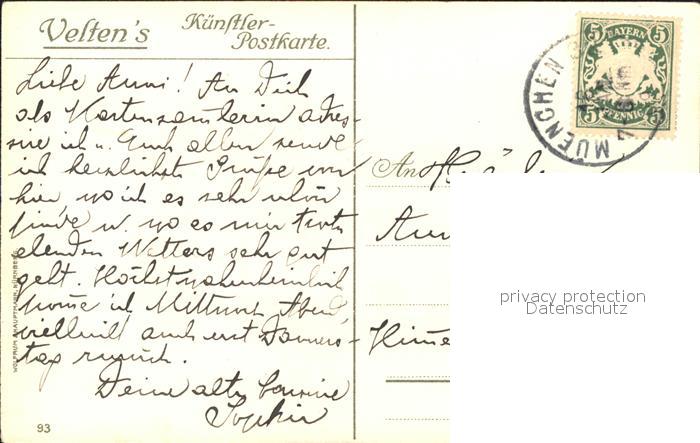 Velten's Künstler-
Postkarte.
Liebe Anni! An Dich
als Kartensammlerin adres-
siere ich u. Euch allen sende
ich herzlichste Grüße von
hier, wo ich es sehr schön
finde u. wo es mir trotz
elenden Wetters sehr gut
geht. Höchstwahrscheinlich
komme ich Mittwoch Abend,
vielleicht auch erst Donners-
tag zurück.
Deine alte Cousine
Sophie
93
WOLFRUM & HAUPTMANN, NÜRNBERG
An
MUENCHEN
BAYERN
5 5
5 5
PFENNIG
privacy protection
Datenschutz